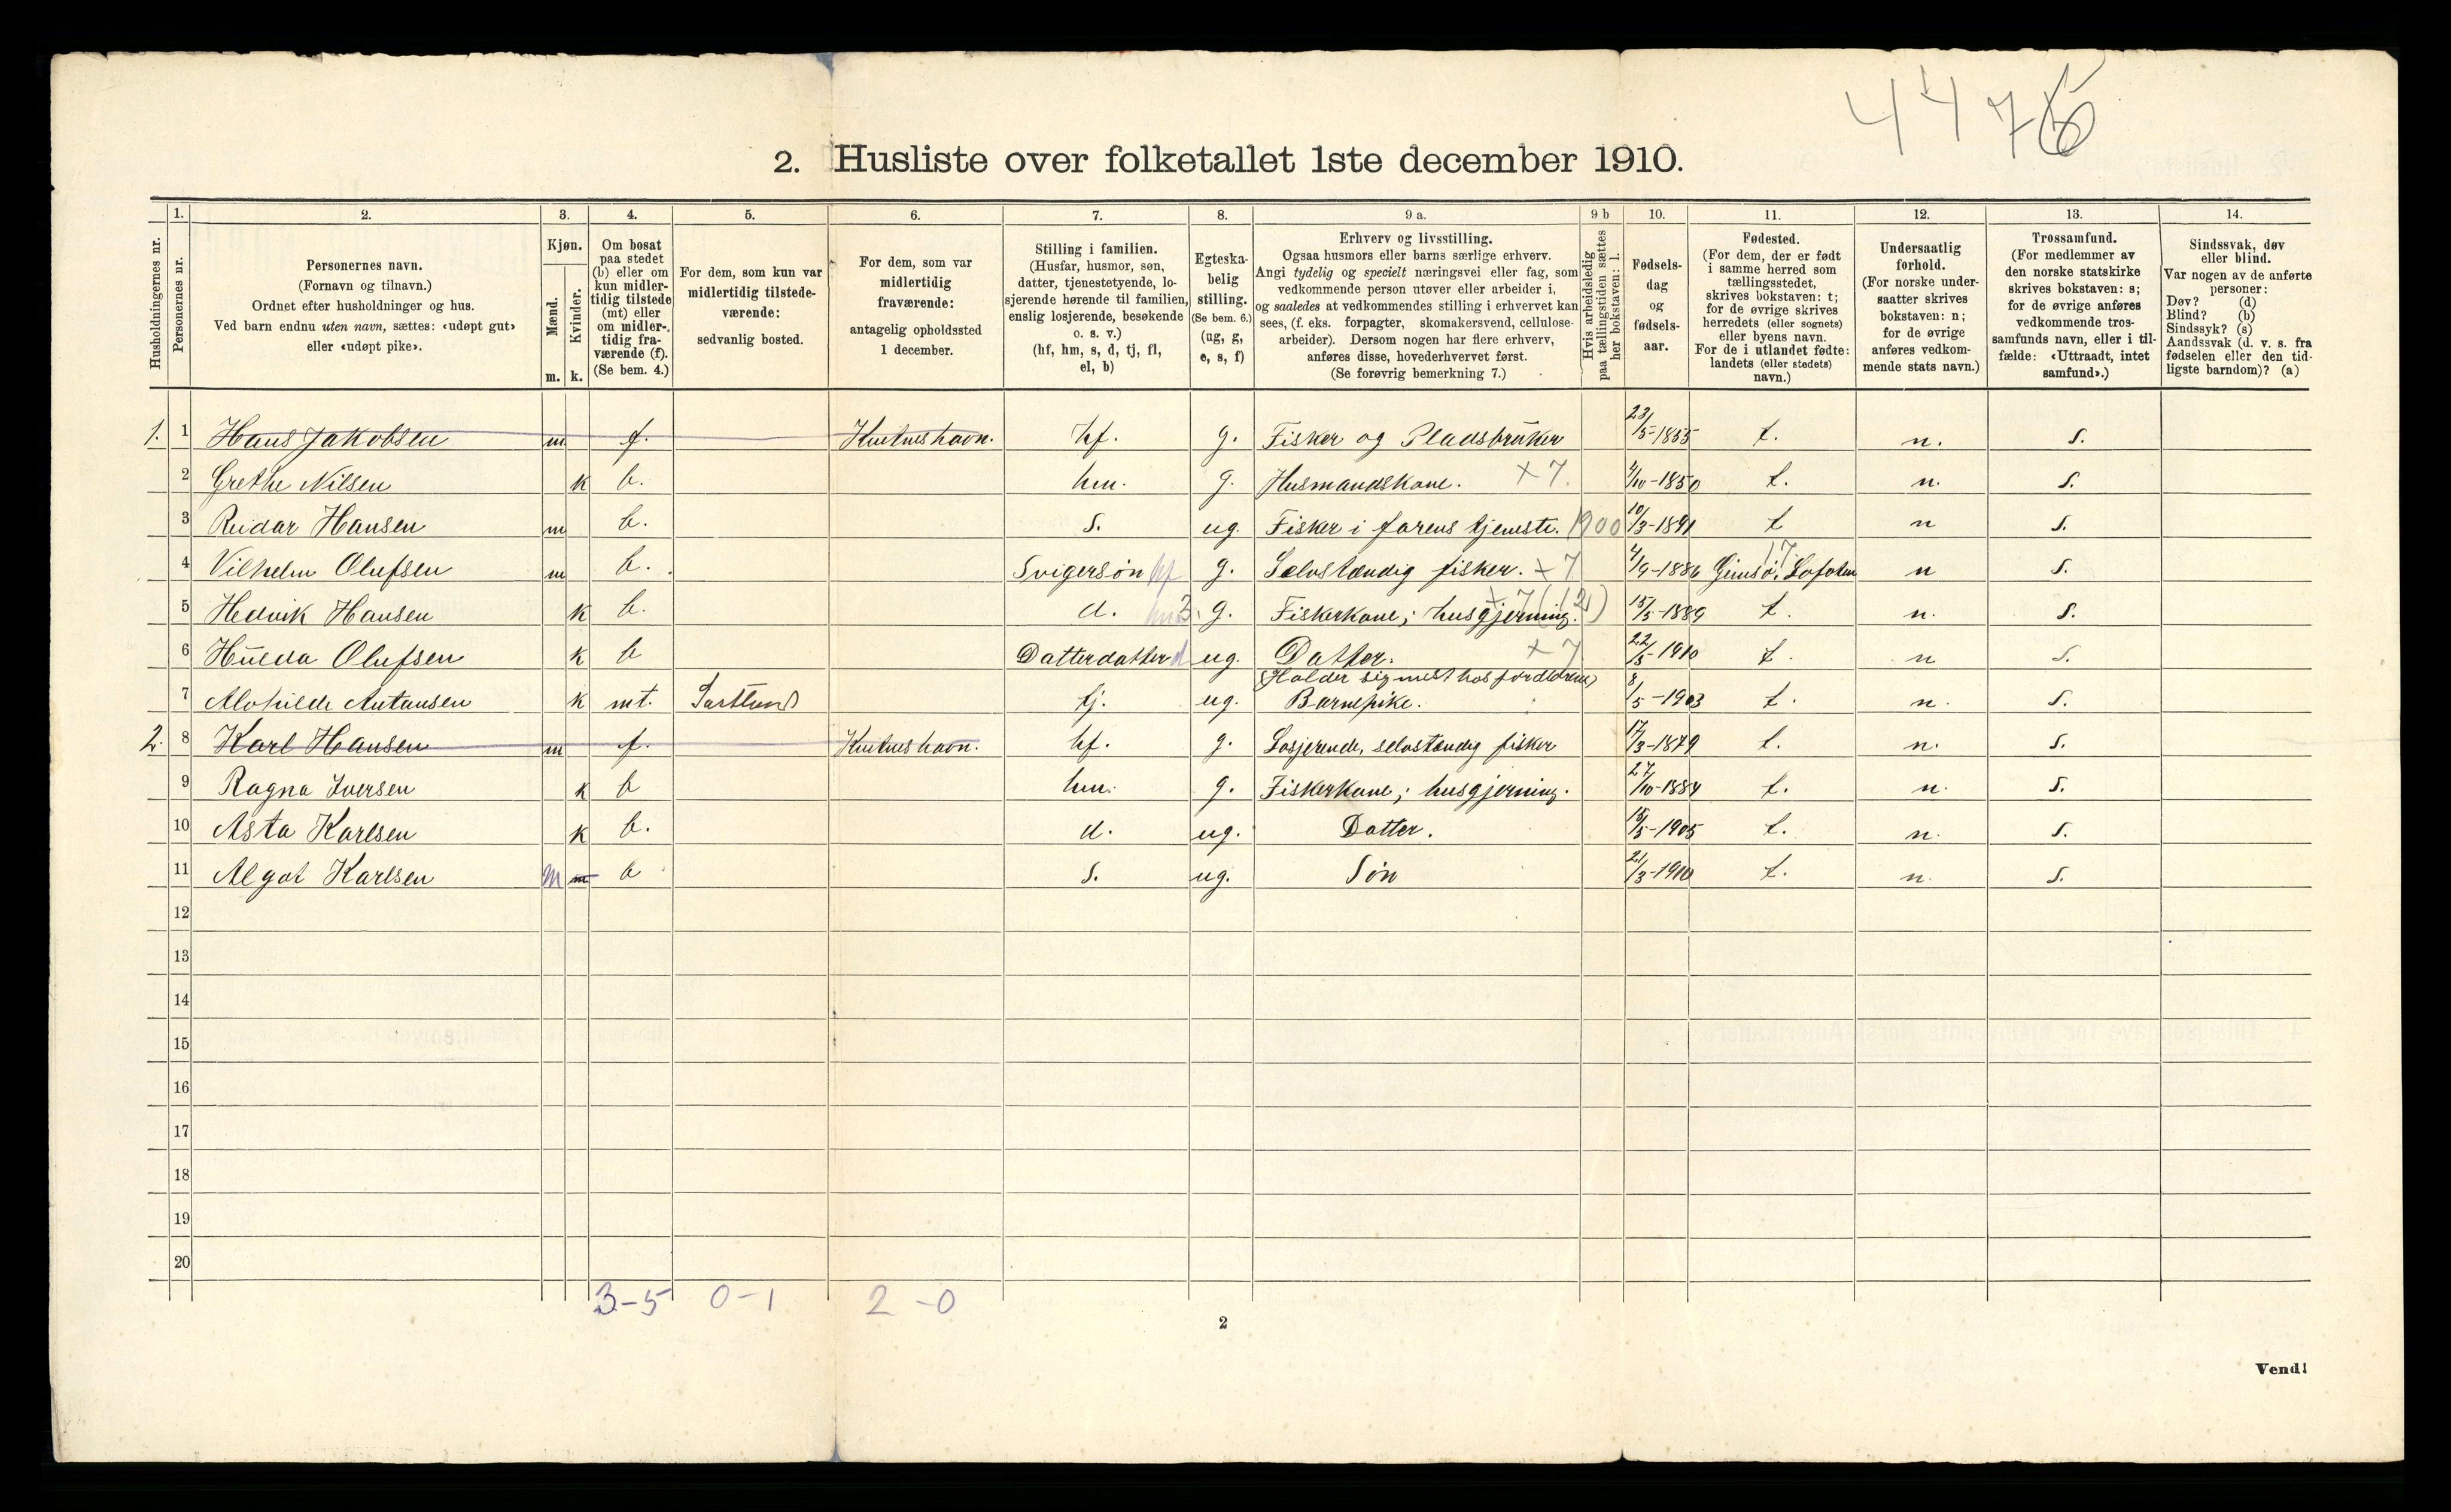 4476
2. Husliste over folketallet 1ste december 1910.
Husholdningernes nr.
1. Personernes nr.
2. Personernes navn.
(Fornavn og tilnavn.)
Ordnet efter husholdninger og hus.
Ved barn endnu uten navn, sættes: «udøpt gut»
eller «udøpt pike».
3. Kjøn.
Mænd. m.
Kvinder. k.
4. Om bosat
paa stedet
(b) eller om
kun midler-
tidig tilstede
(mt) eller
om midler-
tidig fra-
værende (f).
(Se bem. 4.)
5. For dem, som kun var
midlertidig tilstede-
værende:
sedvanlig bosted.
6. For dem, som var
midlertidig
fraværende:
antagelig opholdssted
1 december.
7. Stilling i familien.
(Husfar, husmor, søn,
datter, tjenestetyende, lo-
sjerende hørende til familien,
enslig losjerende, besøkende
o. s. v.)
(hf, hm, s, d, tj, fl,
el, b)
8. Egteska-
belig
stilling.
(Se bem. 6.)
(ug, g,
e, s, f)
9 a. Erhverv og livsstilling.
Ogsaa husmors eller barns særlige erhverv.
Angi tydelig og specielt næringsvei eller fag, som
vedkommende person utøver eller arbeider i,
og saaledes at vedkommendes stilling i erhvervet kan
sees, (f. eks. forpagter, skomakersvend, cellulose-
arbeider). Dersom nogen har flere erhverv,
anføres disse, hovederhvervet først.
(Se forøvrig bemerkning 7.)
9 b Hvis arbeidsledig
paa tællingstiden sættes
her bokstaven: l.
10. Fødsels-
dag
og
fødsels-
aar.
11. Fødested.
(For dem, der er født
i samme herred som
tællingsstedet,
skrives bokstaven: t;
for de øvrige skrives
herredets (eller sognets)
eller byens navn.
For de i utlandet fødte:
landets (eller stedets)
navn.)
12. Undersaatlig
forhold.
(For norske under-
saatter skrives
bokstaven: n;
for de øvrige
anføres vedkom-
mende stats navn.)
13. Trossamfund.
(For medlemmer av
den norske statskirke
skrives bokstaven: s;
for de øvrige anføres
vedkommende tros-
samfunds navn, eller i til-
fælde: «Uttraadt, intet
samfund».)
14. Sindssvak, døv
eller blind.
Var nogen av de anførte
personer:
Døv? (d)
Blind? (b)
Sindssyk? (s)
Aandssvak (d. v. s. fra
fødselen eller den tid-
ligste barndom)? (a)
1. 1 Hans Jakobsen m f. hf. g. Fisker og Pladsbruker 23/5-1855 t. n. s.
2 Grethe Nilsen k b. hm. g. Husmandskone. +7. 4/10-1850 t. n. s.
3 Reidar Hansen m b. s. ug. Fisker i farens tjeneste. 1900 10/3-1891 t n s.
4 Vilhelm Olufsen m b. Svigersøn hf g. Selvstændig fisker. +7 4/9-1886 Gimsø, Lofoten 17 n s.
5 Hedvik Hansen k b. d. g. Fiskerkone; husgjerning. 15/5-1889 t. n. s.
6 Hulda Olufsen k b Datterdatter d ug. Datter. +7 22/5-1910 t. n s.
7 Antonsen k mt. tj. ug. (Holder sig mest hos forældrene)
Barnepike. 8/5-1903 t. n. s.
2. 8 Karl Hansen m f. hf. g. Losjerende, selvstændig fisker 17/3-1879 t. n. s.
9 Ragna Iversen k b hm. g. Fiskerkone; husgjerning. 27/10-1884 t. n. s.
10 Asta Karlsen k b. d. ug. Datter. 15/5-1905 t. n. s.
11 Algot Karlsen m m b s. ug. Søn 21/3-1910 t. n. s.
12
13
14
15
16
17
18
19
20
3-5 0-1 2-0
2
Vend!